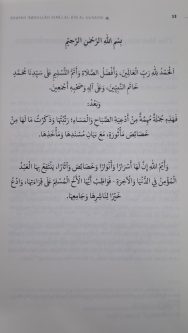 بِسْمِ اللهِ الرَّحْمٰنِ الرَّحِيْمِ
اَلْحَمْدُ لِلّٰهِ رَبِّ الْعَالَمِيْنَ، وَأَفْضَلُ الصَّلَاةِ وَأَتَمُّ التَّسْلِيْمِ عَلَى سَيِّدِنَا مُحَمَّدٍ
خَاتَمِ النَّبِيِّيْنَ، وَعَلَى آلِهِ وَصَحْبِهِ أَجْمَعِيْنَ.
وَبَعْدُ:
فَهٰذِهِ جُمْلَةٌ مُهِمَّةٌ مِنْ أَدْعِيَةِ الصَّبَاحِ وَالْمَسَاءِ، رَتَّبْتُهَا وَذَكَرْتُ مَا لَهَا مِنْ
خَصَائِصَ مَأْثُوْرَةٍ، مَعَ بَيَانِ مُسْتَنَدِهَا وَمَأْخَذِهَا.
وَأَيْمُ اللهِ إِنَّ لَهَا أَسْرَارًا وَأَنْوَارًا وَخَصَائِصَ وَآثَارًا، يَنْتَفِعُ بِهَا الْعَبْدُ
الْمُؤْمِنُ فِي الدُّنْيَا وَالْآخِرَةِ - فَوَاظِبْ أَيُّهَا الْأَخُ الْمُسْلِمُ عَلَى قِرَاءَتِهَا، وَادْعُ
خَيْرًا لِنَاشِرِهَا وَجَامِعِهَا.